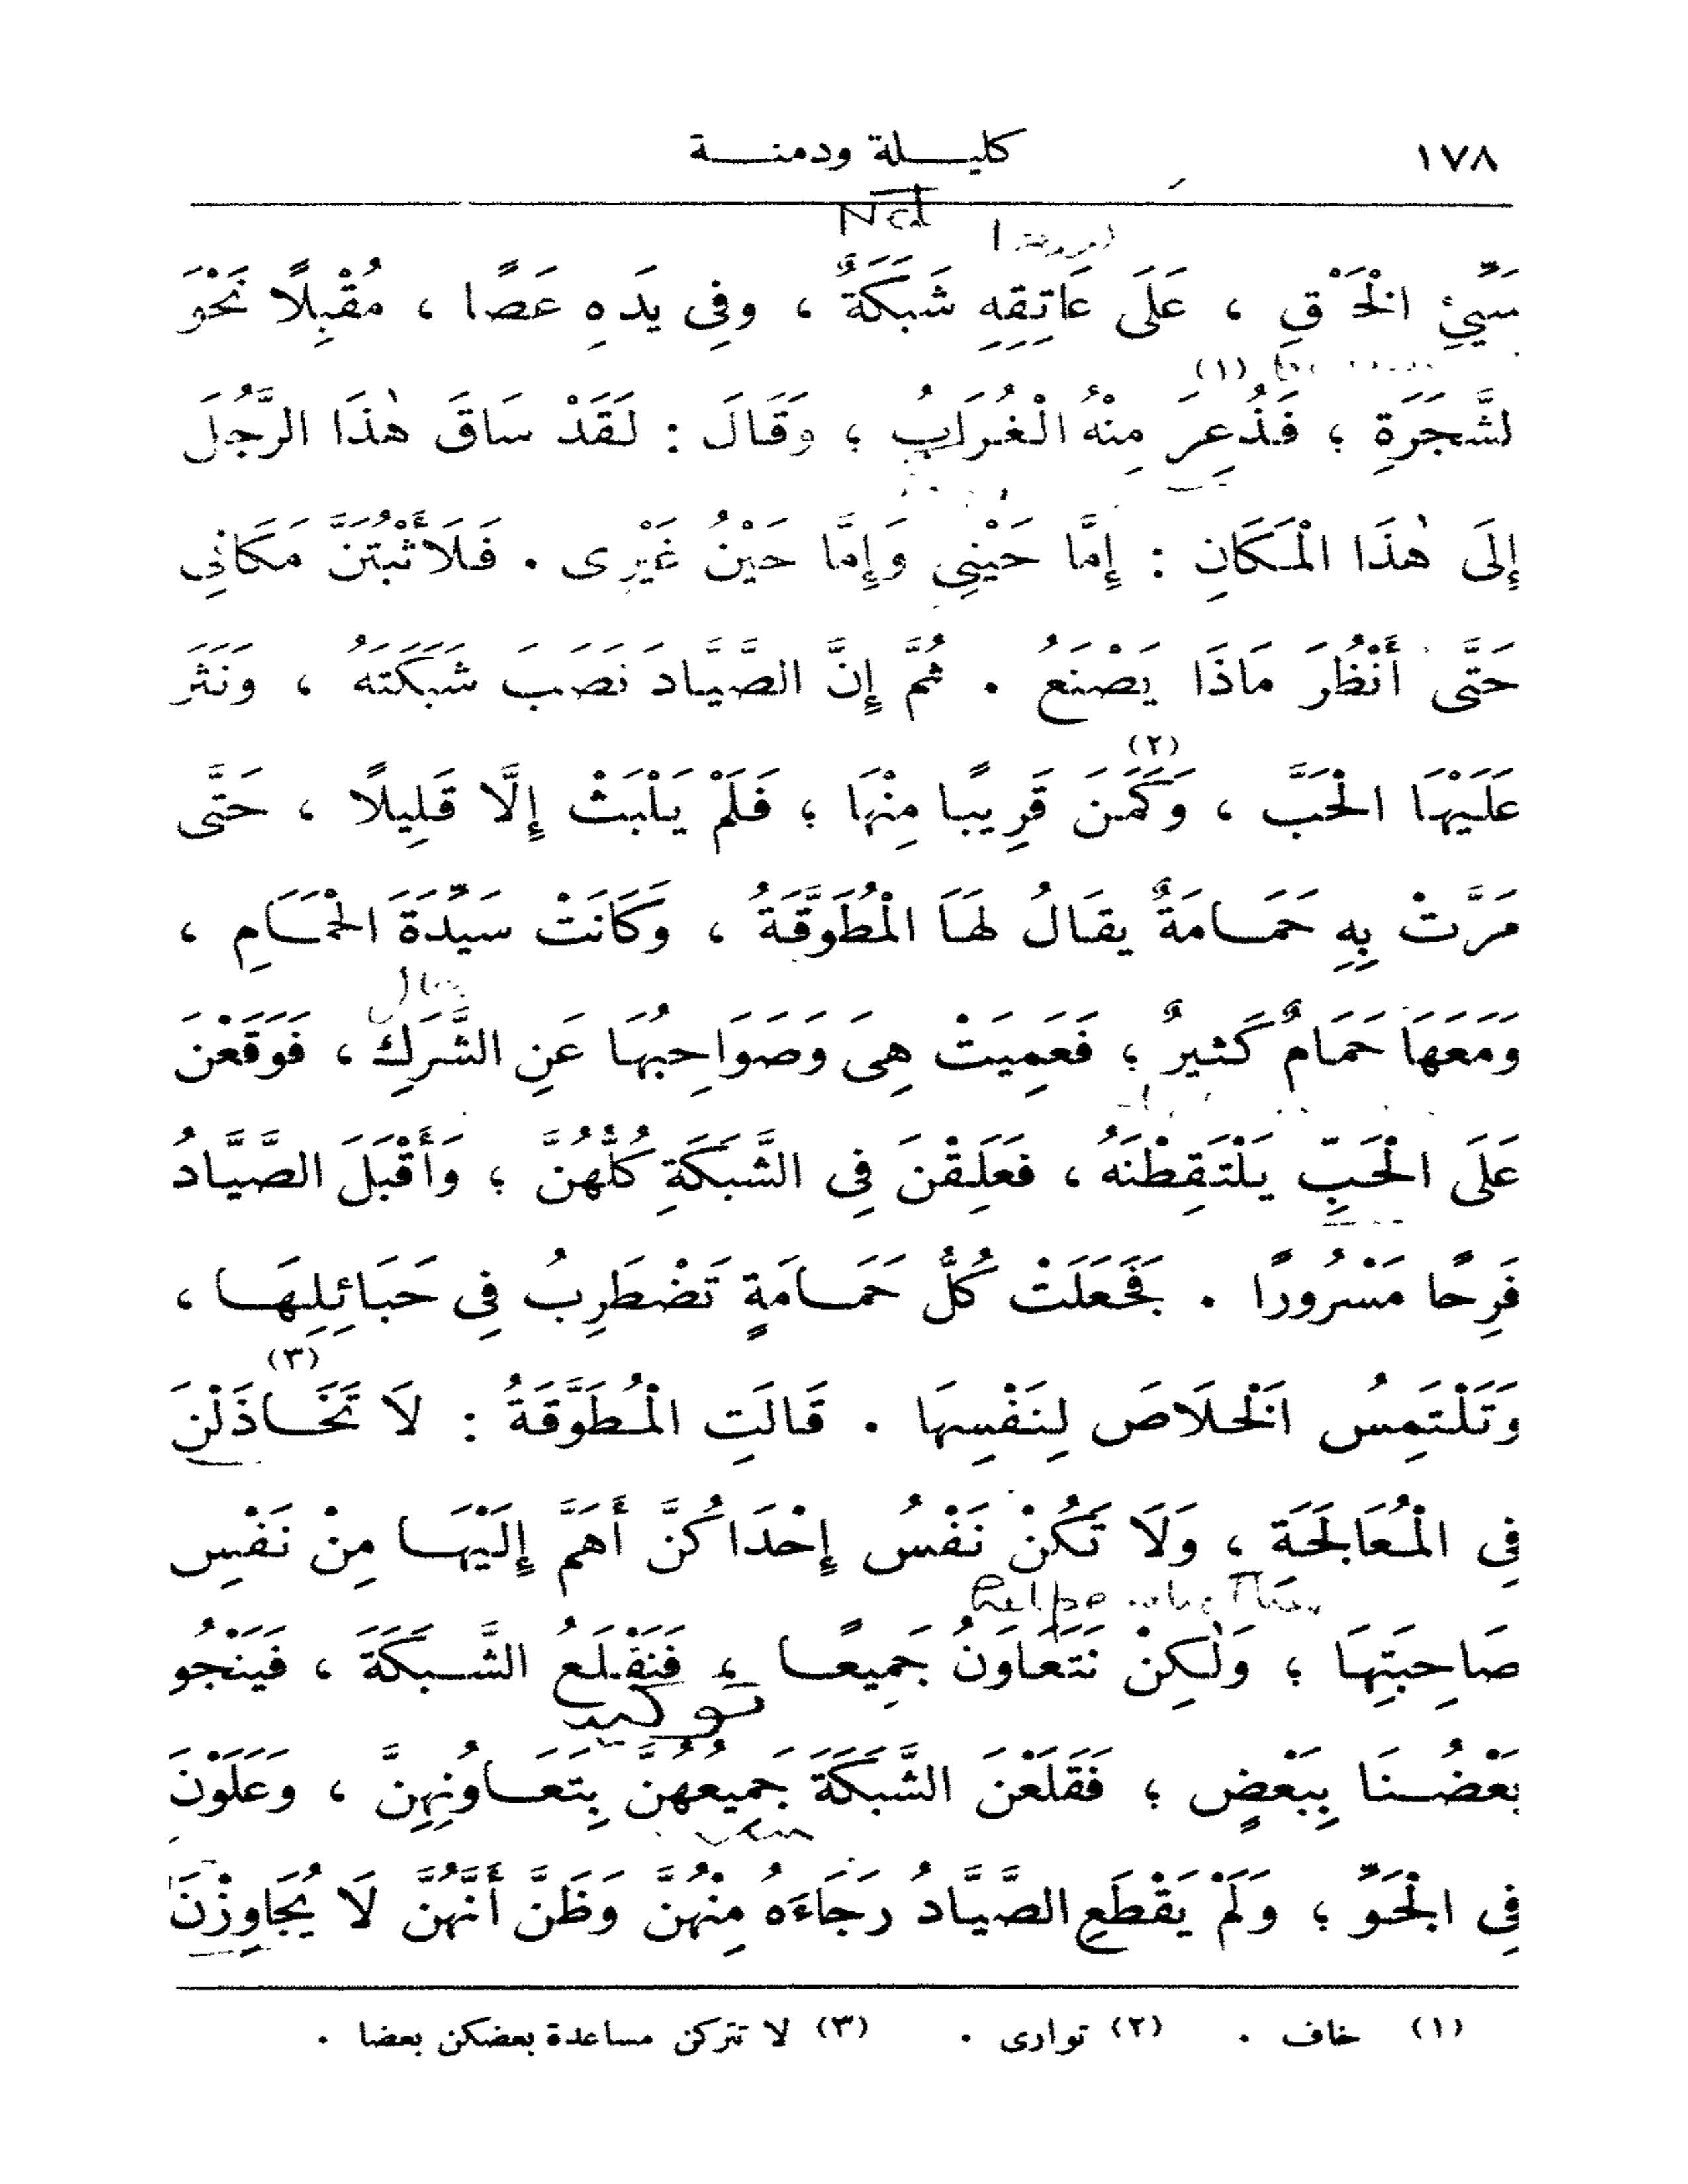 ١٧٨
كليلة ودمنة
Net
سَيِّئِ الْخَلْقِ ، عَلَى عَاتِقِهِ شَبَكَةٌ ، وفِى يَدَهِ عَصًا ، مُقْبِلًا نَحْوَ
لشَّجَرَةِ ؛ فَذُعِرَ (١) مِنْهُ الْغُرَابُ ؛ وَقَالَ : لَقَدْ سَاقَ هٰذَا الرَّجُلَ
إِلَى هٰذَا الْمَكَانِ : إِمَّا حَيْنِى وَإِمَّا حَيْنُ غَيْرِى . فَلَأَثْبُتَنَّ مَكَانِى
حَتَّى أَنْظُرَ مَاذَا يَصْنَعُ . ثُمَّ إِنَّ الصَّيَّادَ نَصَبَ شَبَكَتَهُ ، وَنَثَرَ
عَلَيْهَا الْحَبَّ ، وَكَمَنَ (٢) قَرِيبًا مِنْهَا ؛ فَلَمْ يَلْبَثْ إِلَّا قَلِيلًا ، حَتَّى
مَرَّتْ بِهِ حَمَامَةٌ يقَالُ لهَاَ الْمُطَوَّقَةُ ، وَكَانَتْ سَيِّدَةَ الْحَمَامِ ،
وَمَعَهَا حَمَامٌ كَثيرٌ ؛ فَعَمِيَتْ هِىَ وَصَوَاحِبُهَا عَنِ الشَّرَكِ ، فَوَقَعْنَ
عَلَى الْحَبِّ يَلْتَقِطْنَهُ ، فَعَلِقْنَ فِى الشَّبَكَةِ كُلُّهُنَّ ؛ وَأَقْبَلَ الصَّيَّادُ
فَرِحًا مَسْرُورًا . فَجَعَلَتْ كُلُّ حَمَامَةٍ تَضْطَرِبُ فِى حَبَائِلِهَا ،
وَتَلْتَمِسُ الْخَلَاصَ لِنَفْسِهَا . قَالَتِ الْمُطَوَّقَةُ : لَا تَخَاذَلْنَ (٣)
فِى الْمُعَالَجَةِ ، وَلَا تَكُنْ نَفْسُ إِحْدَاكُنَّ أَهَمَّ إِلَيْهَا مِنْ نَفْسِ
صَاحِبَتِهَا ؛ وَلٰكِنْ نَتَعَاوَنُ جَمِيعًا ، فَنَقْلَعُ الشَّبَكَةَ ، فَيَنْجُو
توكيد
بَعْضُنَا بِبَعْضٍ ؛ فَقَلَعْنَ الشَّبَكَةَ جَمِيعُهُنَّ بِتَعَاوُنِهِنَّ ، وَعَلَوْنَ
فِى الْجَوِّ ؛ وَلَمْ يَقْطَعِ الصَّيَّادُ رَجَاءَهُ مِنْهُنَّ وَظَنَّ أَنَّهُنَّ لَا يُجَاوِزْنَ
(١) خاف . (٢) توارى . (٣) لا تتركن مساعدة بعضكن بعضا .